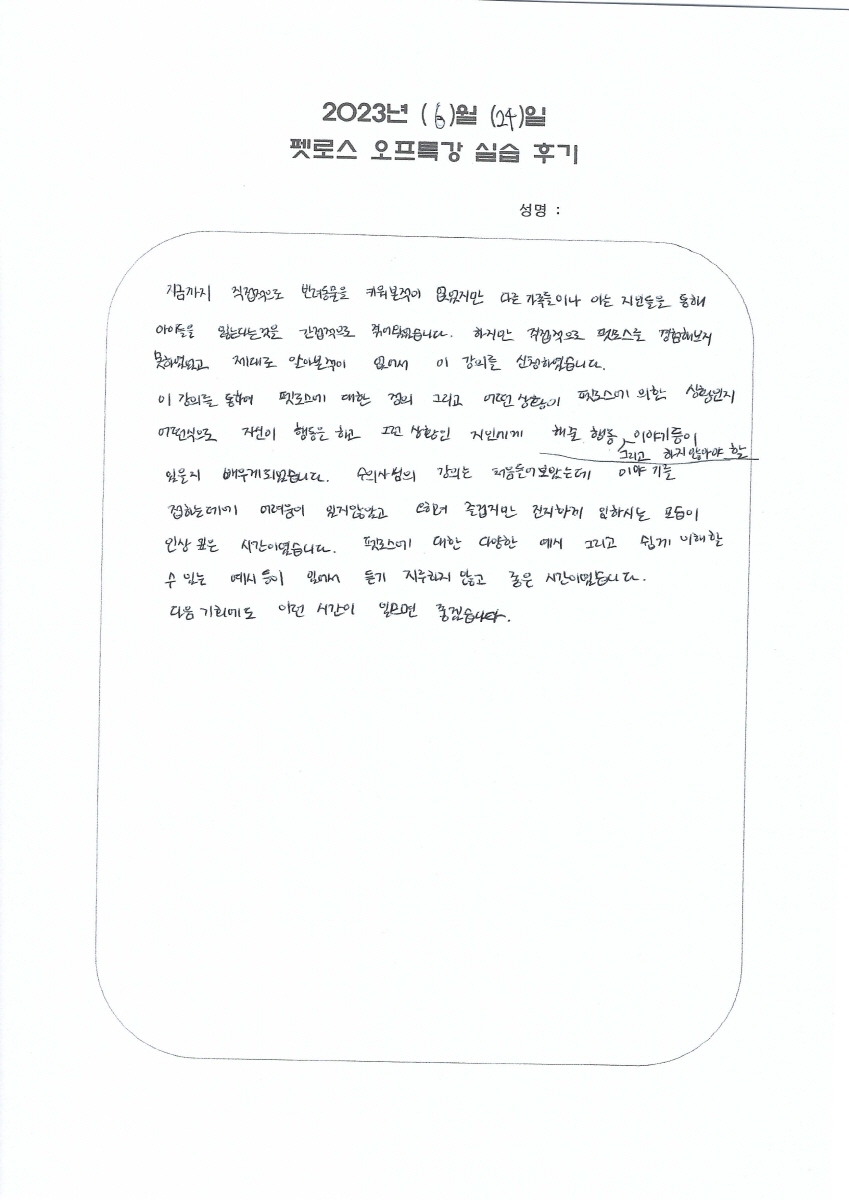 2023년 (6)월 (24)일
펫로스 오프특강 실습 후기
성명 :
지금까지 직접적으로 반려동물을 키워본적이 없었지만 다른 가족들이나 아는 지인들을 통해
아이들을 잃는다는것을 간접적으로 겪어봤었습니다. 하지만 직접적으로 펫로스를 경험해보지
못하였었고 제대로 알아본적이 없어서 이 강의를 신청하였습니다.
이 강의를 통하여 펫로스에 대한 정의 그리고 어떤 상황이 펫로스에 의한 상황인지
어떤식으로 자신이 행동을 하고 그런 상황인 지인에게 해줄 행동, 이야기등이
그리고 하지않아야 할
있을지 배우게되었습니다. 수의사님의 강의는 처음들어보았는데 이야기를
접하는데에 어려움이 있지않았고 오히려 즐겁지만 진지하게 임하시는 모습이
인상 깊은 시간이였습니다. 펫로스에 대한 다양한 예시 그리고 쉽게 이해할
수 있는 예시 등이 있어서 듣기 지루하지 않고 좋은 시간이였습니다.
다음 기회에도 이런 시간이 있으면 좋겠습니다.